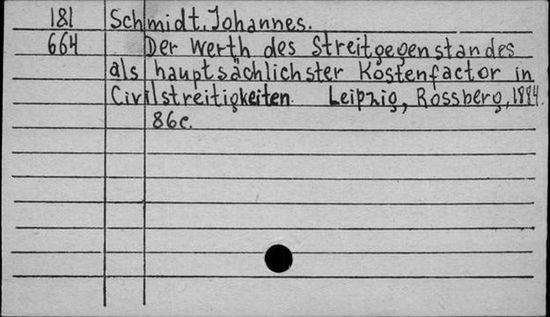 181 Schmidt, Johannes.
664 Der Werth des Streitgegenstandes
als hauptsächlichster Kostenfactor in
Civilstreitigkeiten. Leipzig, Rossberg, 1884.
86c.